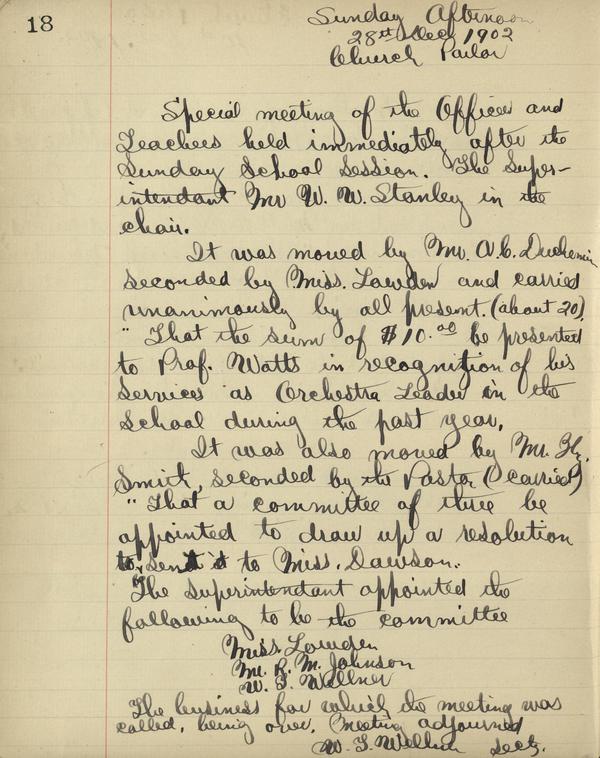 18
Sunday Afternoon
28th Dec 1902
Church Parlor
Special meeting of the Officers and
Teachers held immediately after the
Sunday School Session. The Super-
intendant Mr W. W. Stanley in the
chair.
It was moved by Mr. A.C. Duchemin
seconded by Miss. Lawden and carried
unanimously by all present. (about 20)
" That the sum of $10.00 be presented
to Prof. Watts in recognition of his
Services as Orchestra Leader in the
School during the past year.
It was also moved by Mr.
Smith, seconded by the Pastor (carried)
" That a committee of three be
appointed to draw up a resolution
to send it to Miss. Dawson.
The superintendant appointed the
following to be the committee
Miss. Lawden
Mr. R. M. Johnson
W. F. Wellner
The business for which the meeting was
called, being over, Meeting adjourned
W. F. Wellner Secty.